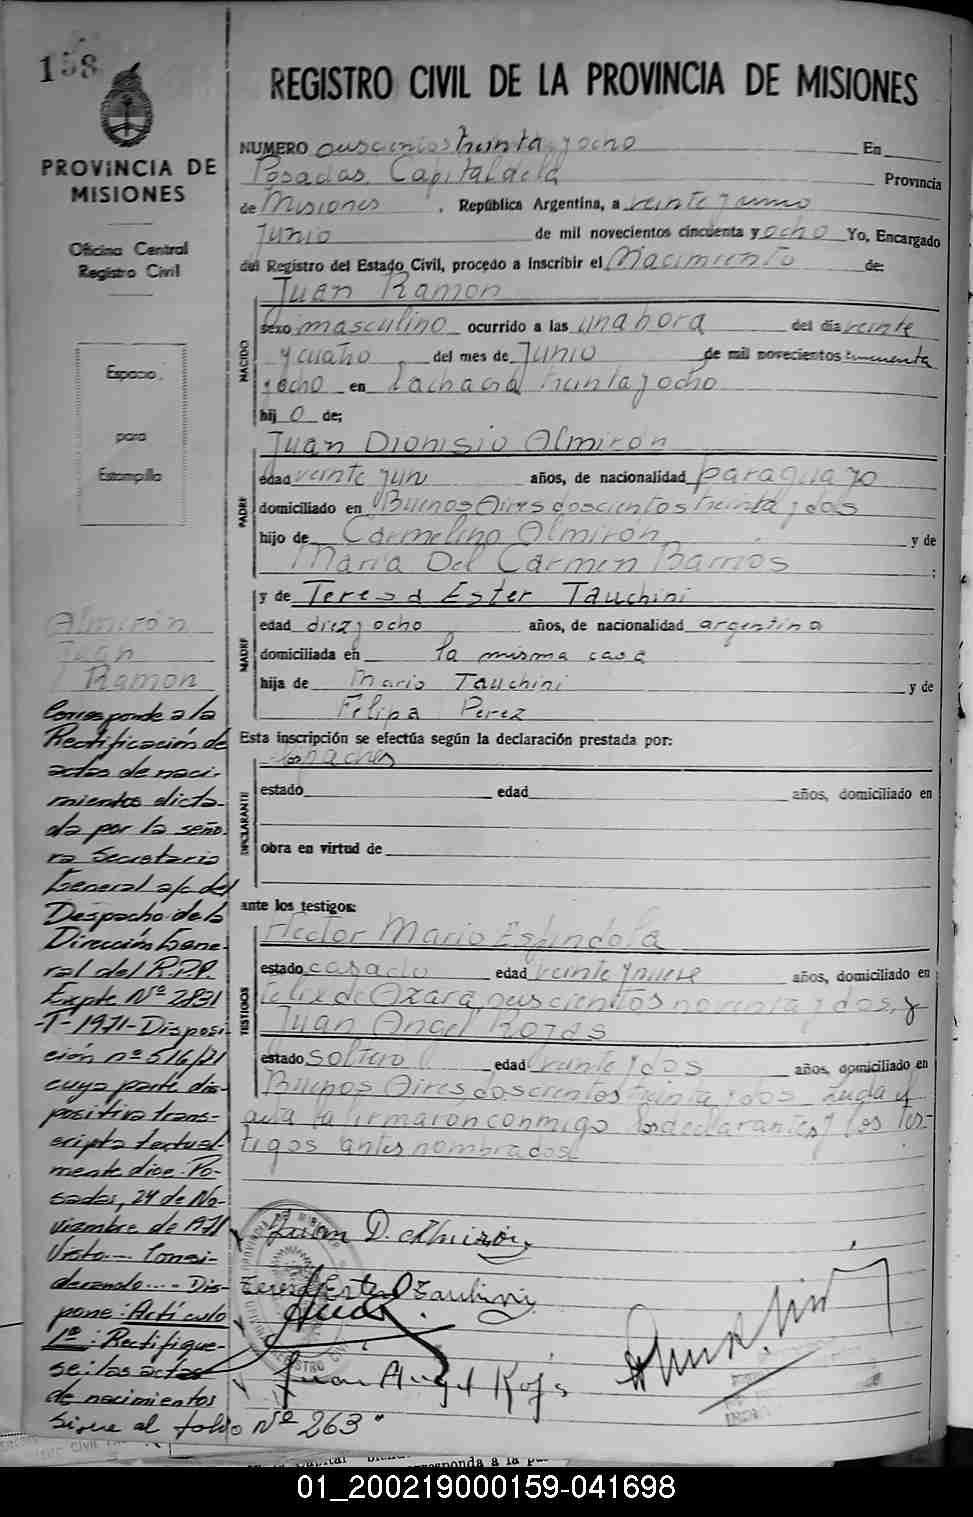 158
PROVINCIA DE
MISIONES
Oficina Central
Registro Civil
Espacio
para
Estampilla
Almirón
Juan
Ramon
Corresponde a la
Rectificación de
actas de naci-
mientos dicta-
da por la seño-
ra Secretaria
General a/c del
Despacho de la
Dirección Gene-
ral del R.P.P.
Expte Nº 2831
-T-1971-Disposi-
ción nº 516/71
cuya parte dis-
positiva trans-
cripta textual-
mente dice: Po-
sadas, 24 de No-
viembre de 1971
Visto.... Consi-
derando.... Dis-
pone: Artículo
1º: Rectifique-
se: las actas
de nacimientos
sigue al folio Nº 263"
REGISTRO CIVIL DE LA PROVINCIA DE MISIONES
NUMERO ouscientos treinta y ocho En
Posadas Capital de la Provincia
de Misiones, República Argentina, a veinte y
Junio de mil novecientos cincuenta y ocho Yo, Encargado
del Registro del Estado Civil, procedo a inscribir el Nacimiento de:
NACIDO
Juan Ramon
sexo masculino ocurrido a las una hora del dia veinte
y cuatro del mes de Junio de mil novecientos cincuenta
y ocho en La chacra treinta y ocho
hij o de;
PADRE
Juan Dionisio Almirón
edad veinte y un años, de nacionalidad paraguayo
domiciliado en Buenos Aires doscientos treinta y dos
hijo de Carmelino Almirón y de
María Del Carmen Barrios ;
MADRE
y de Teresa Ester Tauchini
edad diez y ocho años, de nacionalidad argentina
domiciliada en la misma casa
hija de Mario Tauchini y de
Filipa Perez
Esta inscripción se efectúa según la declaración prestada por:
DECLARANTE
los padres
estado edad años, domiciliado en
obra en virtud de
ante los testigos:
TESTIGOS
Hector Mario Espindola
estado casado edad veinte y nueve años, domiciliado en
Felix de Azara ouscientos noventa y dos, y
Juan Angel Rojas
estado soltero edad veinte y dos años, domiciliado en
Buenos Aires doscientos treinta y dos Leida el
acta la firmaron conmigo los declarantes y los tes-
tigos antes nombrados.
Juan D. Almirón
Teresa Ester Tauchini
Juan Angel Rojas
01_200219000159-041698